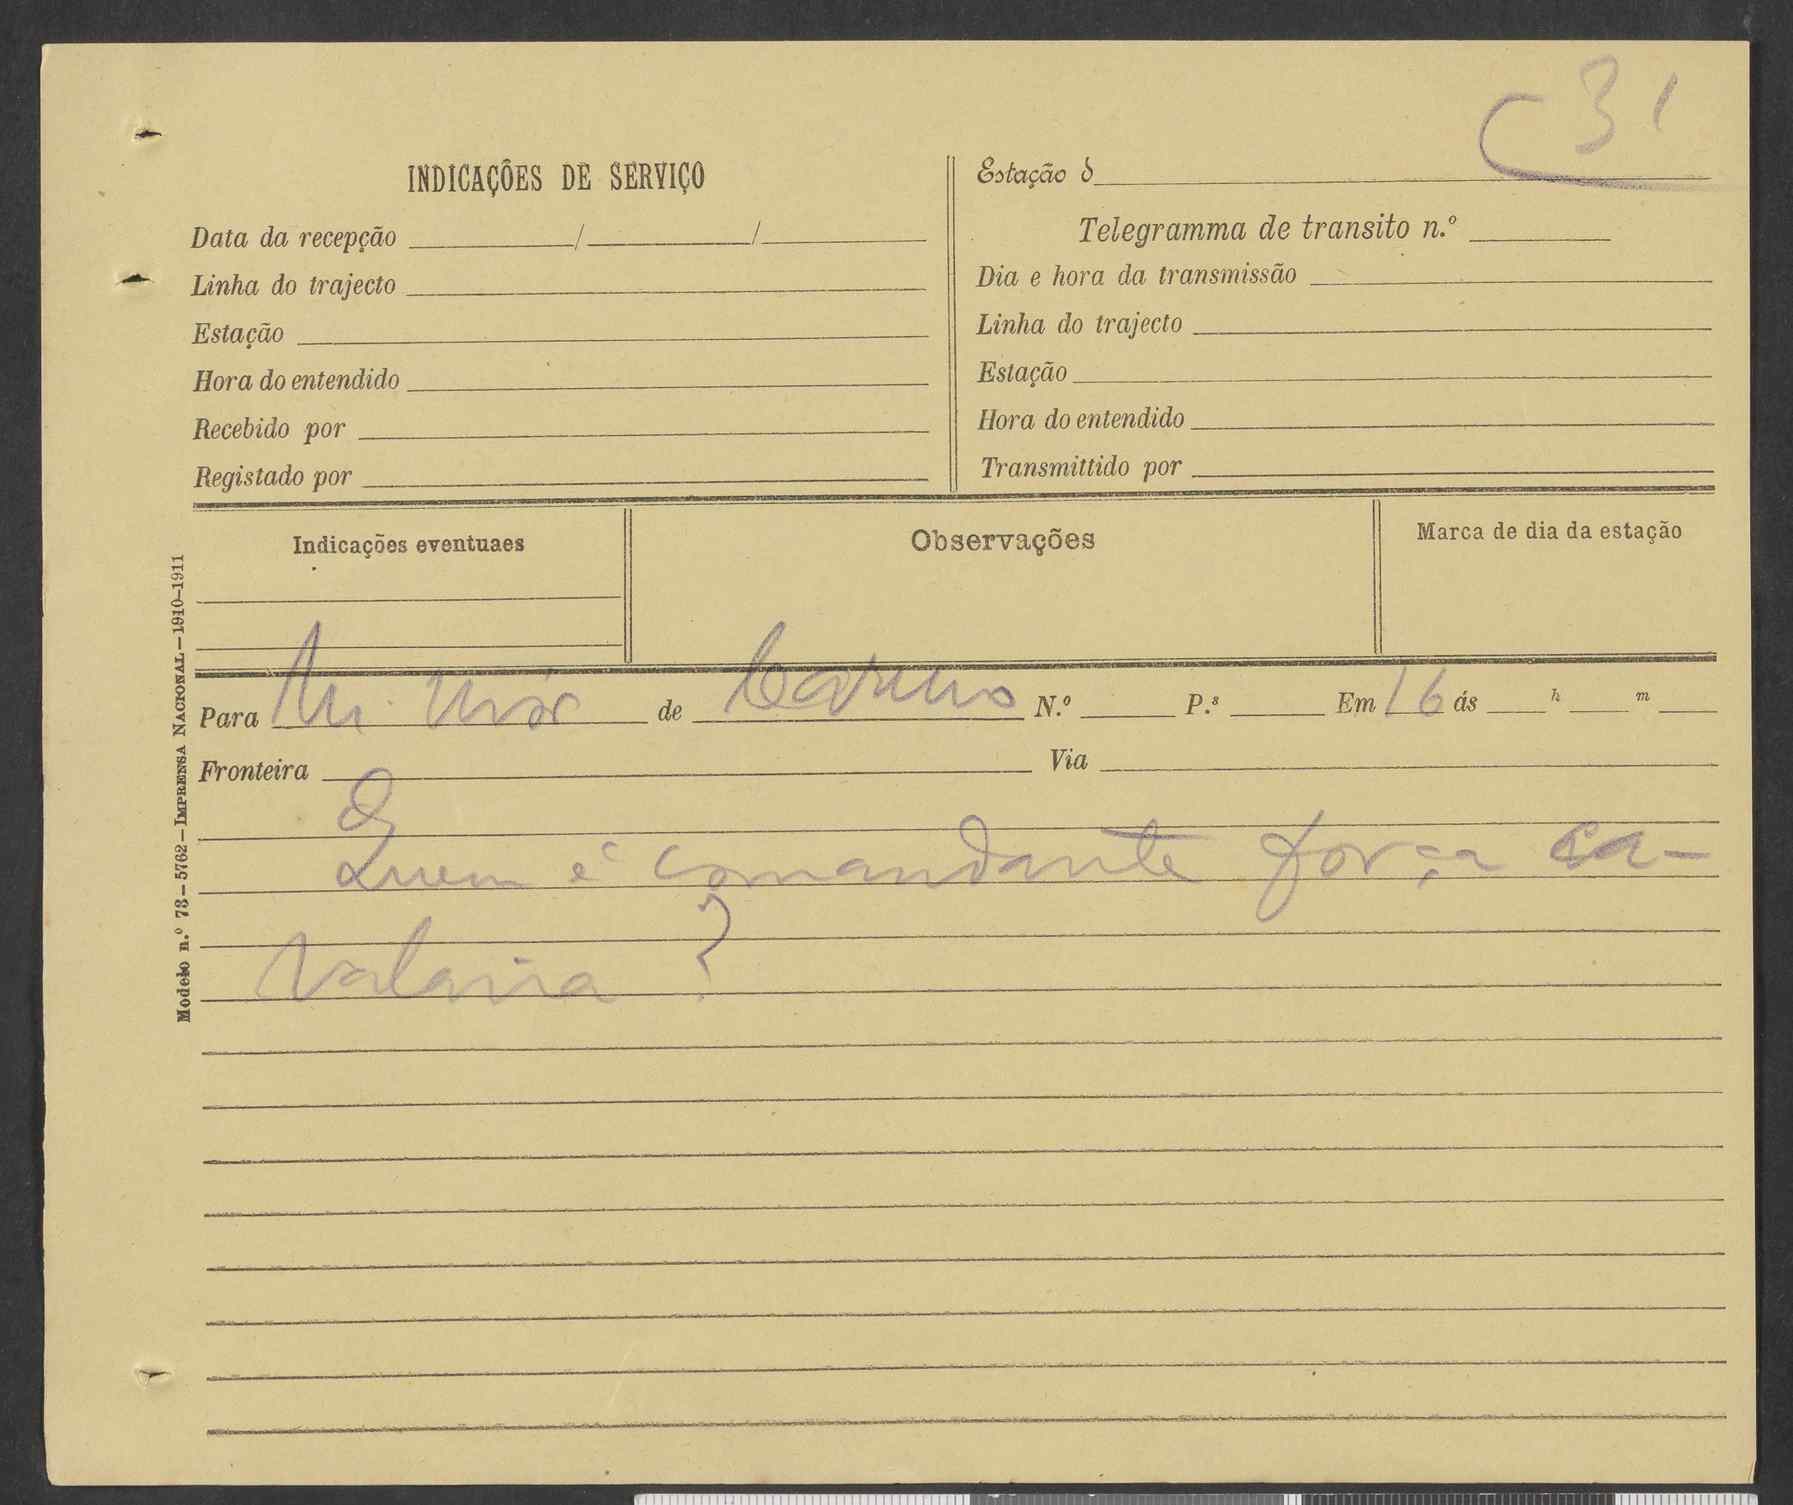 31
INDICAÇÕES DE SERVIÇO
Data da recepção / /
Linha do trajecto
Estação
Hora do entendido
Recebido por
Registado por
Estação d
Telegramma de transito n.º
Dia e hora da transmissão
Linha do trajecto
Estação
Hora do entendido
Transmittido por
Indicações eventuaes
Observações
Marca de dia da estação
Para de N.º P.s Em 16 ás h m
Fronteira Via
Quem é comandante força ca-
valaria ?
Modelo n.º 73 – 5762 – IMPRENSA NACIONAL – 1910–1911